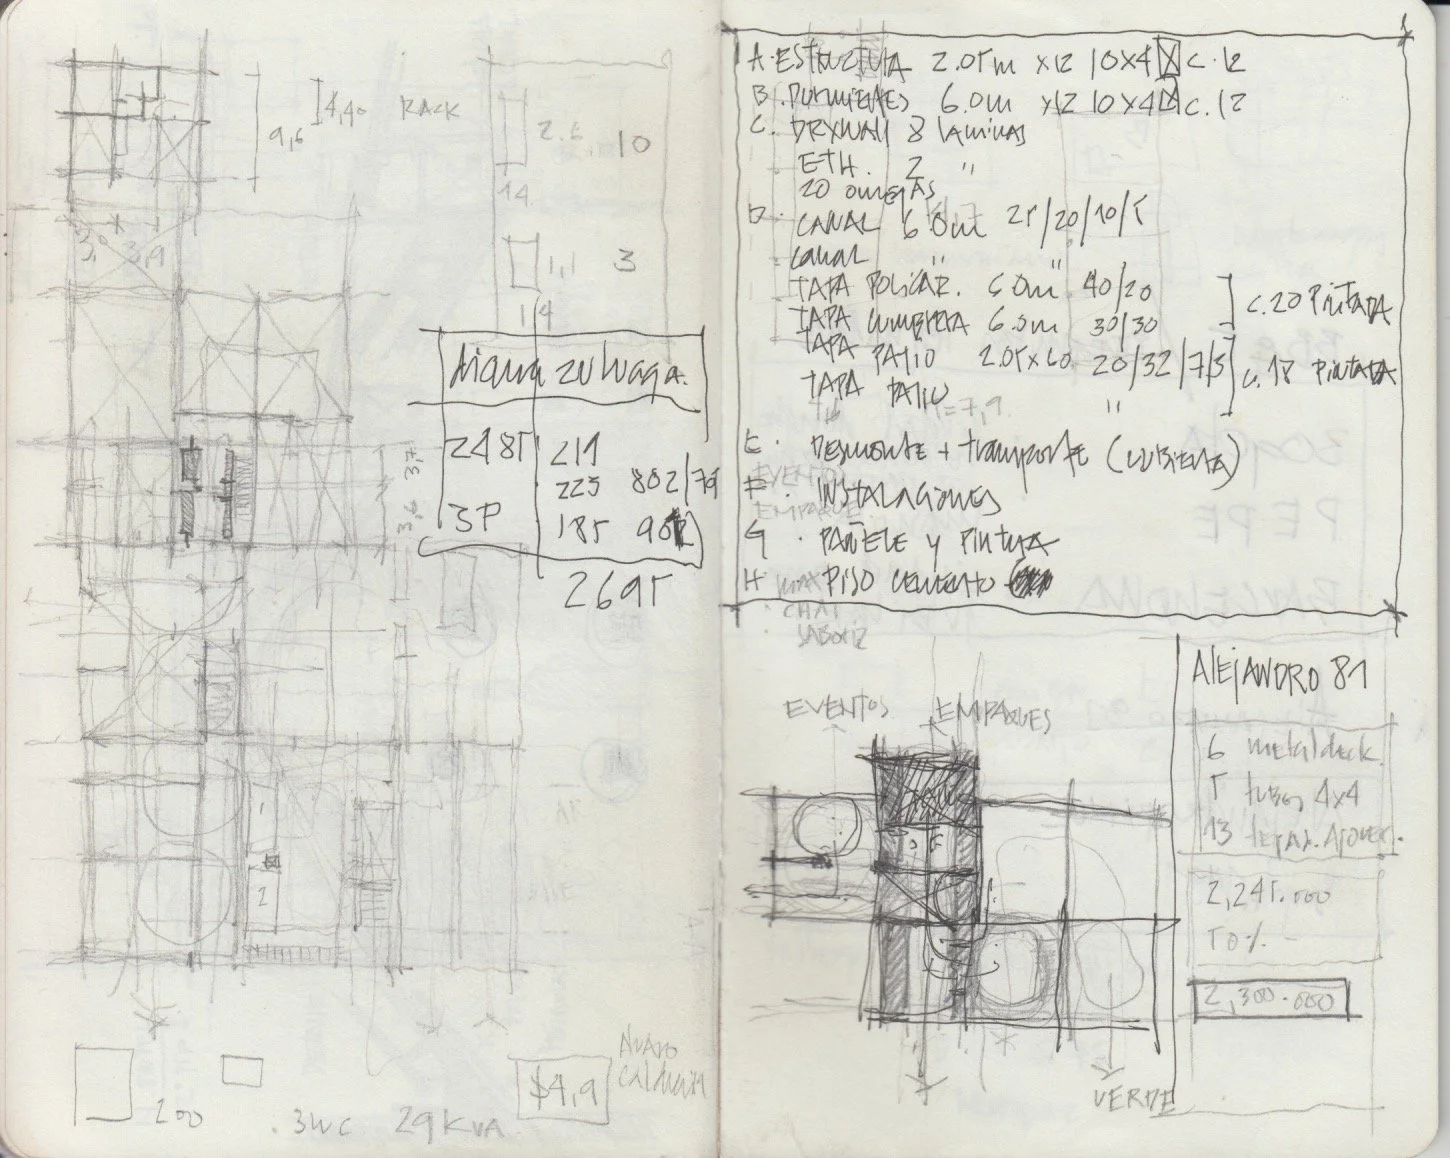 4,40 RACK
9,6
2.5 10
14
3,9
1,1 3
14
2485 211
225 802/79
3P 185
2695
200
.3WC 29KVA
$4,9
NUEVO
A. ESTRUCTURA 2.05m x12 10x4 C.12
B. DURMIENTES 6.0m x12 10x4 C.12
C. DRYWALL 8 laminas
ETH. 2 "
20 omegas
D. CANAL 6.0m 25/20/10/5
canal " "
TAPA POLICAR. 6.0m 40/20
TAPA CUMBRERA 6.0m 30/30
C.20 PINTADA
TAPA PATIO 2.05x60 20/32/7/3
TAPA PATIO "
C.18 PINTADA
=7,9
E. Desmonte + transporte (cubierta)
EVENTOS
F. INSTALACIONES
EMPAQUE
G. PAÑETE y PINTURA
H. PISO cemento
EVENTOS EMPAQUES
VERDE
ALEJANDRO 81
6 metaldeck.
5 tubos 4x4
13
2,245.000
2,300.000